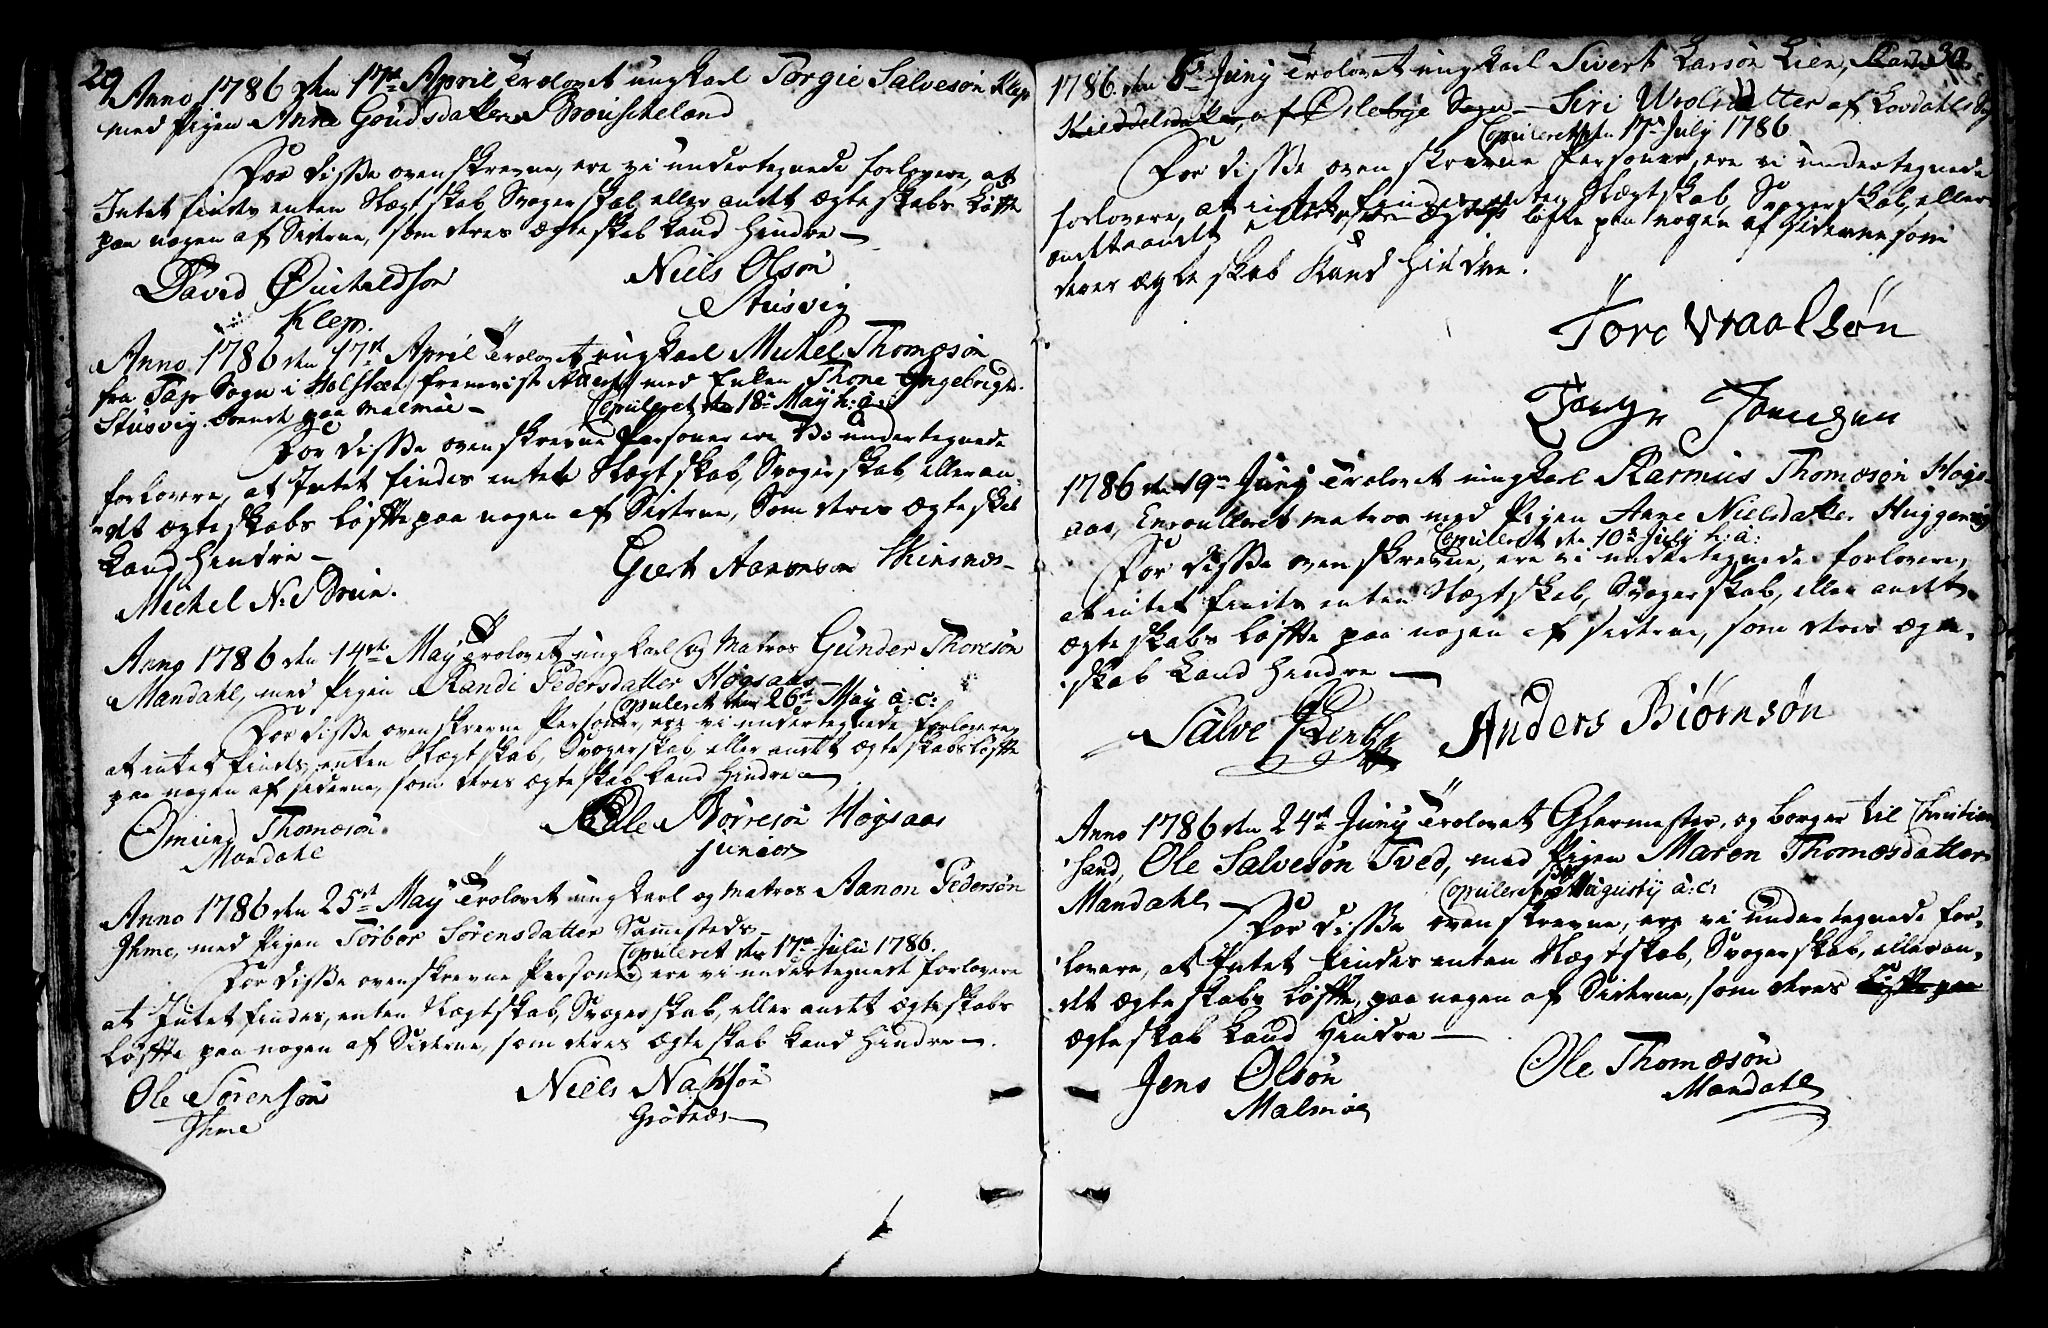 29
Anno 1786 den 17de April Trolovet ungKarl Torgie Salvesön Klep
med Pigen Anne Goudsdatter
For disse ovenskrevne, ere vi undertegnede forlovere, at
Intet findes enten Slægtskab Svogerskab eller andet ægteskabs Løfte
paa nogen af Siderne, som deres ægteskab kand hindre —
David Klep.
Niels Olsön Stusvig
Anno 1786 den 17de April Trolovet ungKarl Michel Thomæsön
fra Sogn i Holsteen, fremviste med Enken Thone Ingebrigts.
Stusvig boende paa Malmöe —
Copuleret den 18de May h: a:
For disse ovenskrevne Personer ere Vi undertegnede
forlovere, at Intet findes enten Slægtskab, Svogerskab, eller an-
det ægteskabs Løffte paa nogen af Siderne, Som deres ægteskab
kand hindre —
Michel N:
Giert Aanensen Skinsnes
Anno 1786 den 14de May Trolovet ungkarl og Matros Gunder Thoresön
Mandahl, med Pigen Randi Pedersdatter Högsaas —
Copuleret den 26de May a: c:
For disse ovenskrevne Personer, ere vi undertegnede forlovere,
at intet findes, enten Slægtskab, Svogerskab eller andet ægteskabsløffte
paa nogen af siderne, som deres ægteskab kand hindre —
Omund Thomæsön. Mandahl
Börresön Högsaas junior
Anno 1786 den 25de May Trolovet ungkarl og Matros Aanon Pedersön
Ihme, med Pigen Torbor Sörensdatter Sammesteds —
Copuleret den 17de Julii 1786.
For disse ovenskrevne Personer ere vi undertegnede forlovere
at Intet findes, enten Slægtskab, Svogerskab, eller andet ægteskabs
løffte paa nogen af Siderne, som deres ægteskab kand hindre —.
Ole Sörensön Ihme
Niels Grötnæs
30
1786. den 5te Juny Trolovet ungkarl Sivert Larsön Lien,
af Sogn — Siri datter af
Copuleret den 17de July 1786
For disse ovenskrevne Personer, ere vi undertegnede
forlovere, at intet findes enten Slægtskab, Svogerskab, eller
andet løfte paa nogen af siderne som
deres ægteskab Kand Hindre.
Tore
1786 den 19de Juny Trolovet ungkarl Rasmus Thomæsön Högs-
aas, Enroulleret matros med Pigen Anne Nielsdatter
Copuleret den 10de July h: a:
For disse ovenskrevne, ere vi undertegnede forlovere,
at intet findes enten Slægtskab, Svogerskab, eller andet
ægteskabs løffte paa nogen af siderne, som deres ægte-
skab kand hindre —
Salve
Anders Biörnsön
Anno 1786 den 24de Juny Trolovet Glarmester, og borger til Christian-
sand, Ole Salvesön Tved, med Pigen Maren Thomæsdatter
Mandahl —
Copuleret Augustij a: c:
For disse ovenskrevne, ere vi undertegnede for-
lovere, at Intet findes enten Slægtskab, Svogerskab, eller an-
det ægteskabs løffte, paa nogen af Siderne, som deres løffte paa
ægteskab kand Hindre —
Jens Olsön Malmöe
Ole Thomæsön Mandahl